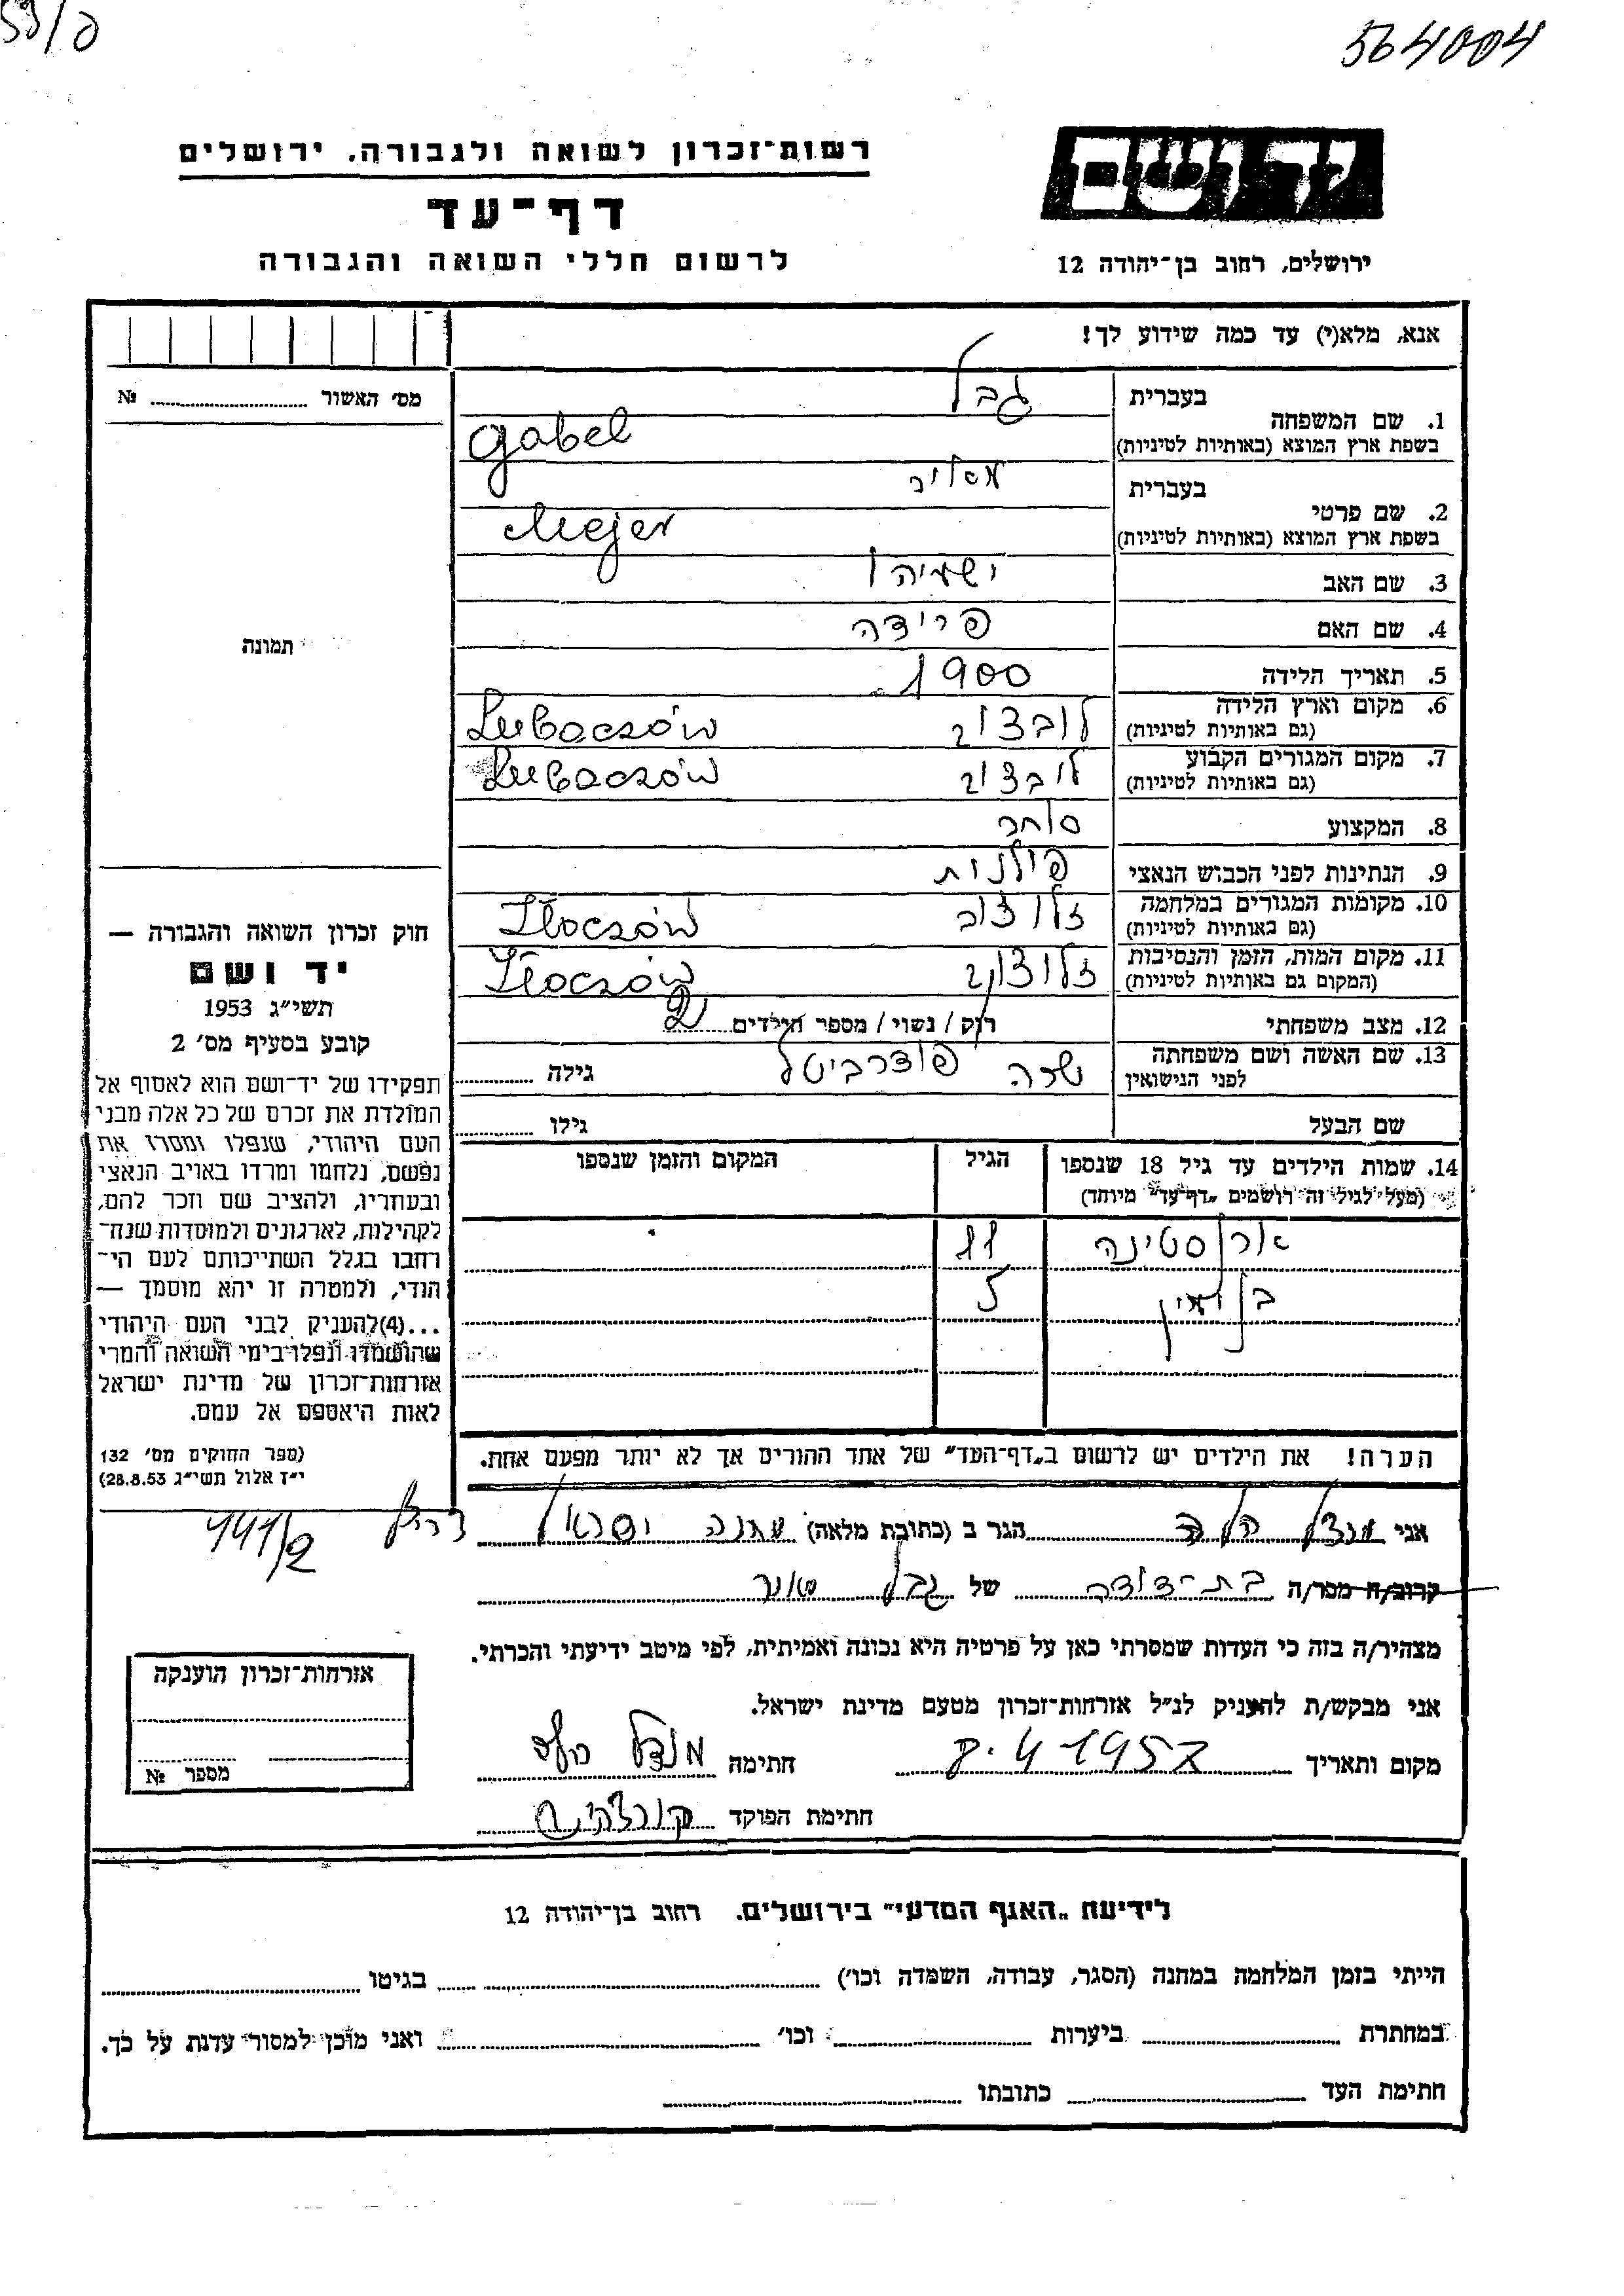 59/8
564004
רשות־זכרון לשואה ולגבורה. ירושלים
יד ושם
דף־עד
לרשום חללי השואה והגבורה
ירושלים, רחוב בן־יהודה 12
אנא, מלא(י) עד כמה שידוע לך!
מס׳ האשור № 
1. שם המשפחה בעברית גבל
בשפת ארץ המוצא (באותיות לטיניות) Gabel
2. שם פרטי בעברית מאיר
בשפת ארץ המוצא (באותיות לטיניות) Mejer
3. שם האב ישעיהו
4. שם האם פרידה
תמונה
5. תאריך הלידה 1900
6. מקום וארץ הלידה (גם באותיות לטיניות) לובצוב Lubaczów
7. מקום המגורים הקבוע (גם באותיות לטיניות) לובצוב Lubaczów
8. המקצוע סוחר
9. הנתינות לפני הכבוש הנאצי פולנית
10. מקומות המגורים במלחמה (גם באותיות לטיניות) זלוצוב Złoczów
11. מקום המות, הזמן והנסיבות (המקום גם באותיות לטיניות) זלוצוב Złoczów
12. מצב משפחתי רוק / נשוי / מספר הילדים 2
13. שם האשה ושם משפחתה לפני הנישואין שרה גילה
שם הבעל גילו
14. שמות הילדים עד גיל 18 שנספו הגיל המקום והזמן שנספו
(מעל לגיל זה רושמים „דף־עד״ מיוחד)
11
5
הערה! את הילדים יש לרשום ב„דף־העד״ של אחד ההורים אך לא יותר מפעם אחת.
חוק זכרון השואה והגבורה —
יד ושם
תשי״ג 1953
קובע בסעיף מס׳ 2
תפקידו של יד־ושם הוא לאסוף אל
המולדת את זכרם של כל אלה מבני
העם היהודי, שנפלו ומסרו את
נפשם, נלחמו ומרדו באויב הנאצי
ובעוזריו, ולהציב שם וזכר להם,
לקהילות, לארגונים ולמוסדות שנח־
רבו בגלל השתייכותם לעם הי־
הודי, ולמטרה זו יהא מוסמך —
...(4) להעניק לבני העם היהודי
שהושמדו ונפלו בימי השואה והמרי
אזרחות־זכרון של מדינת ישראל
לאות היאספם אל עמם.
(ספר החוקים מס׳ 132
י״ז אלול תשי״ג 28.8.53)
אני מנדל הלה הגר ב (כתובת מלאה) מחנה ישראל
141/2
קרוב/ה מכר/ה בת־דודה של גבל מאיר
מצהיר/ה בזה כי העדות שמסרתי כאן על פרטיה היא נכונה ואמיתית, לפי מיטב ידיעתי והכרתי.
אני מבקש/ת להעניק לנ״ל אזרחות־זכרון מטעם מדינת ישראל.
מקום ותאריך 8.4 1957 חתימה מנדל הלה
חתימת הפוקד
אזרחות־זכרון הוענקה
מספר №
לידיעת „האגף המדעי״ בירושלים. רחוב בן־יהודה 12
הייתי בזמן המלחמה במחנה (הסגר, עבודה, השמדה וכו׳) בגיטו
במחתרת ביערות וכו׳ ואני מוכן למסור עדות על כך.
חתימת העד כתובתו